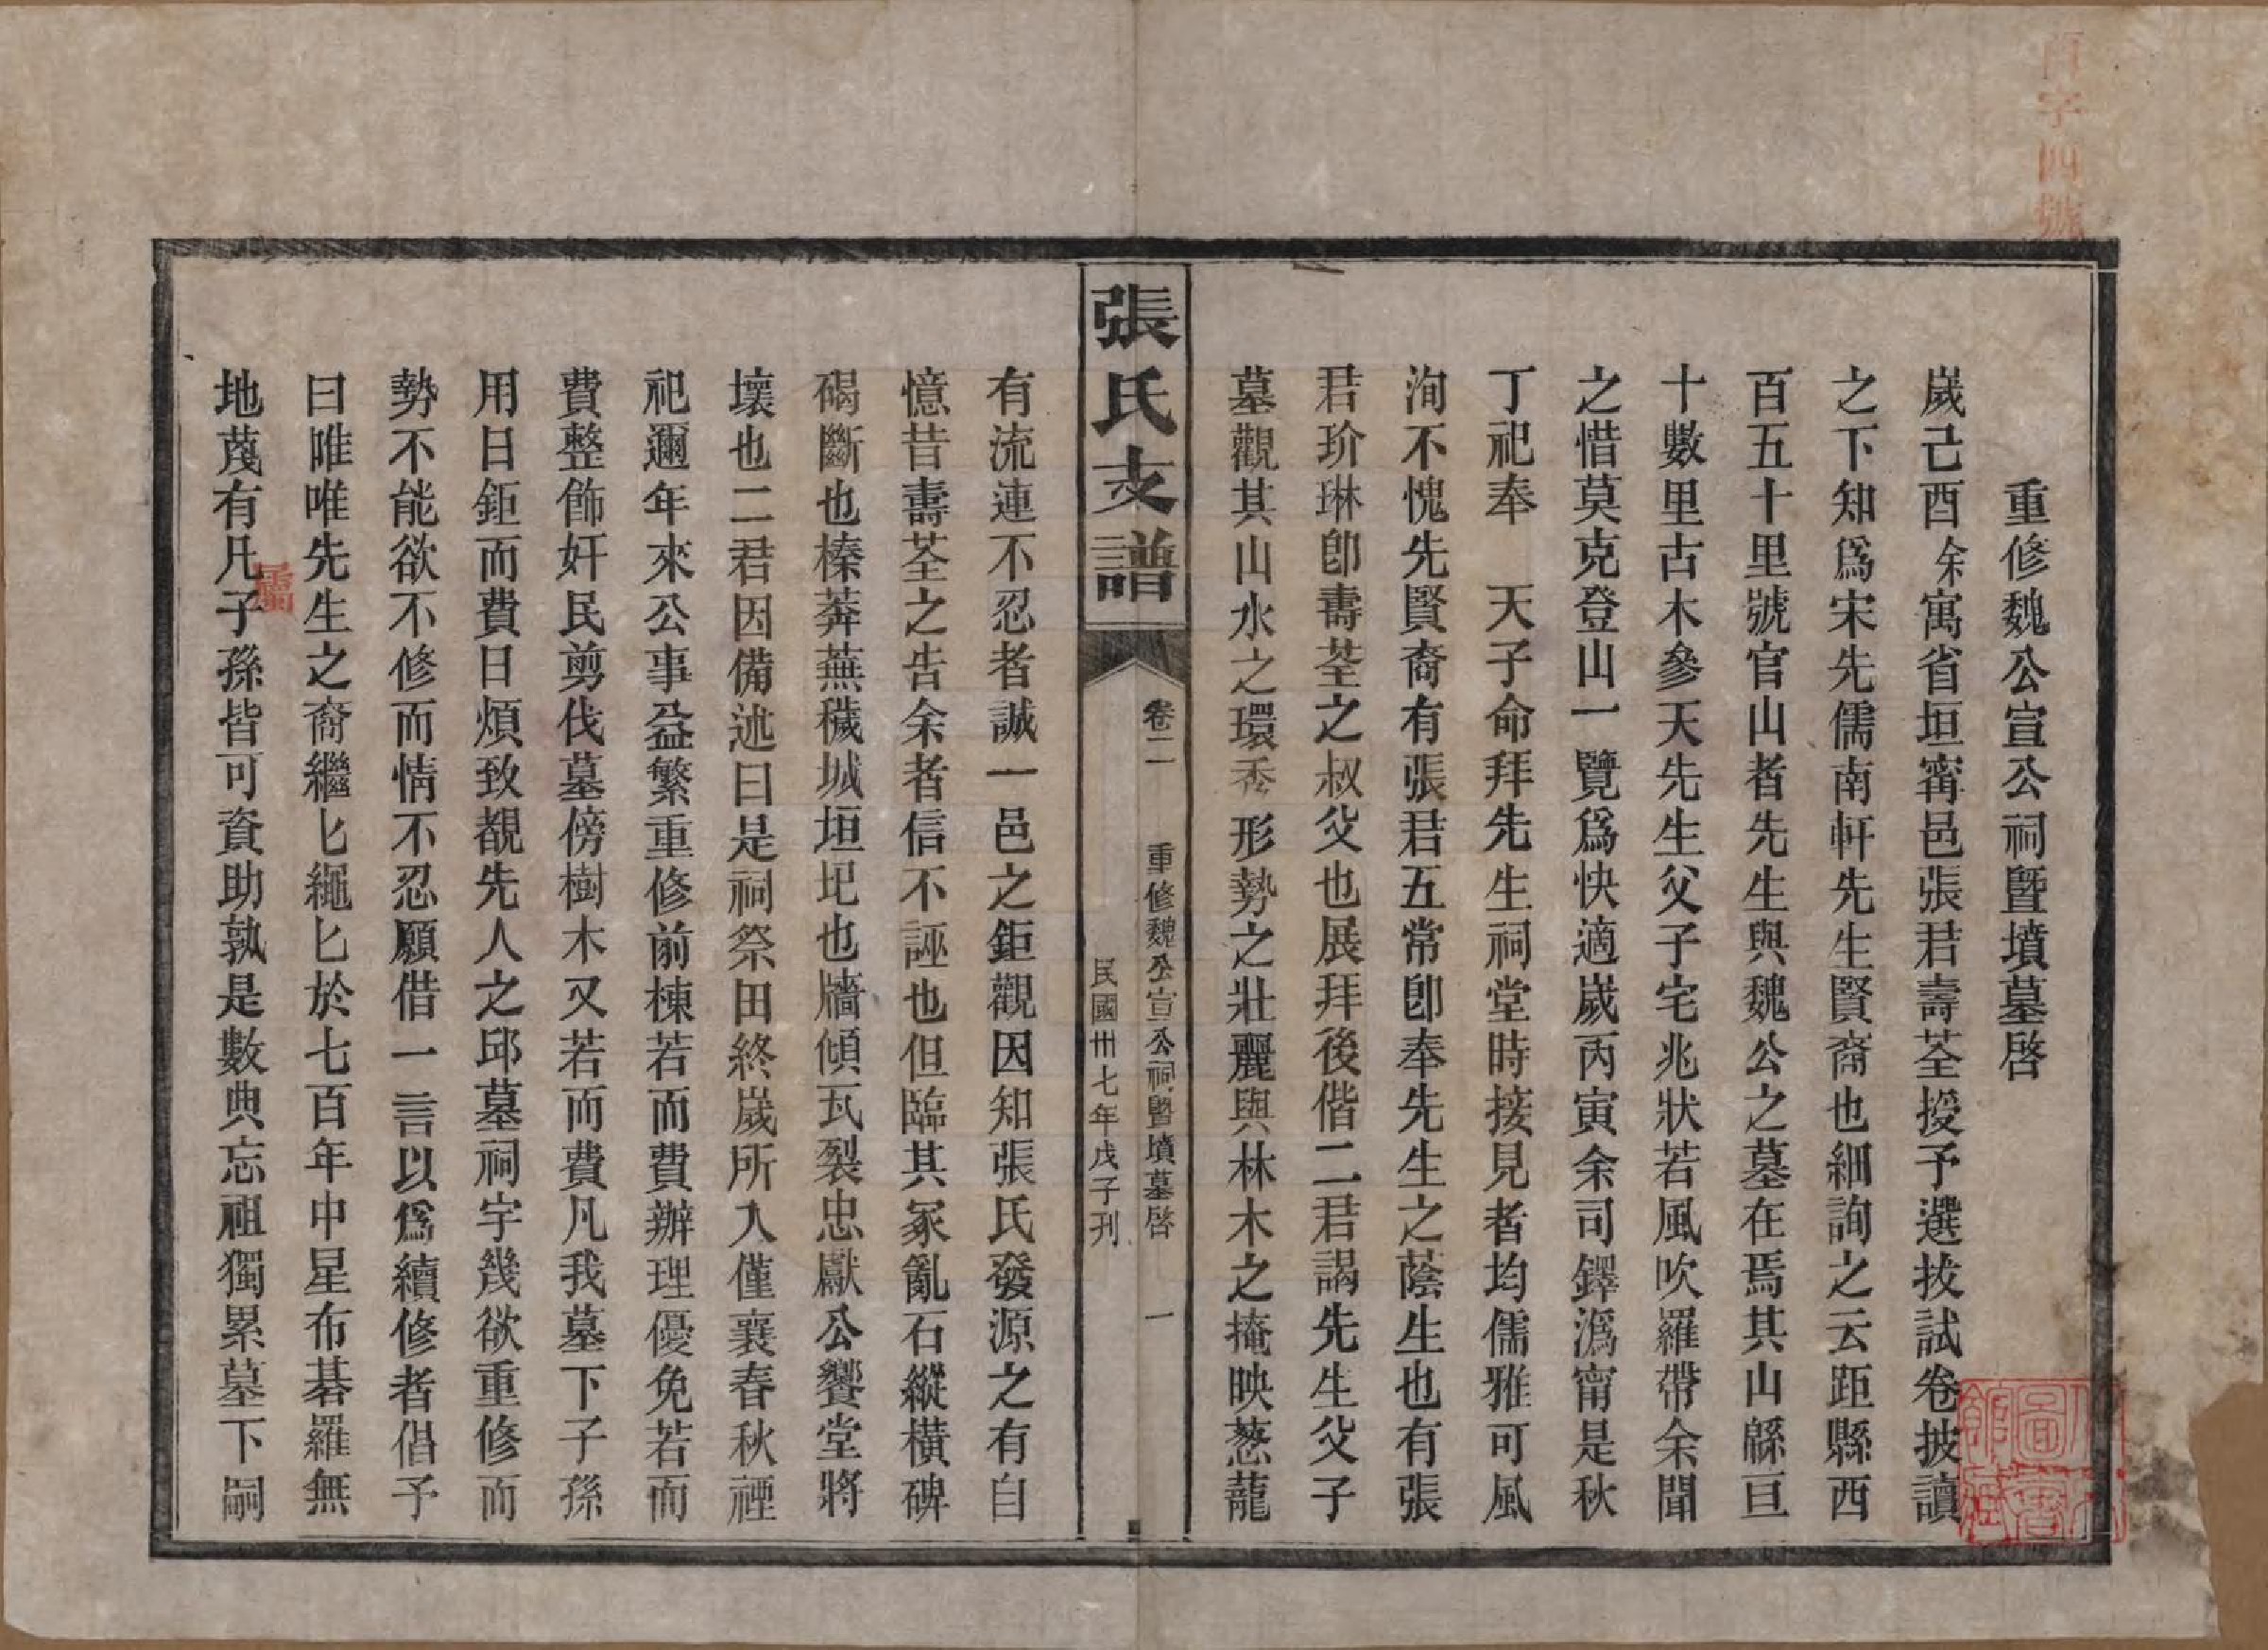 百字四號
重修魏公宣公祠暨墳墓啓
歲己酉余寓省垣甯邑張君壽荃授予選拔試卷披讀
之下知爲宋先儒南軒先生賢裔也細詢之云距縣西
百五十里號官山者先生與魏公之墓在焉其山緜亘
十數里古木參天先生父子宅兆狀若風吹羅帶余聞
之惜莫克登山一覽爲快適歲丙寅余司鐸潙甯是秋
丁祀奉　天子命拜先生祠堂時接見者均儒雅可風
洵不愧先賢裔有張君五常卽奉先生之蔭生也有張
君玠琳卽壽荃之叔父也展拜後偕二君謁先生父子
墓觀其山水之環秀形勢之壯麗與林木之掩映葱蘢
張氏支譜
卷二　重修魏公宣公祠暨墳墓啓　一
民國卅七年戊子刋
有流連不忍者誠一邑之鉅觀因知張氏發源之有自
憶昔壽荃之告余者信不誣也但臨其冢亂石縱橫碑
碣斷也榛莽蕪穢城垣圯也牆傾瓦裂忠獻公饗堂將
壞也二君因備述曰是祠祭田終歲所入僅襄春秋禋
祀邇年來公事益繁重修前棟若而費辦理優免若而
費整飾奸民剪伐墓傍樹木又若而費凡我墓下子孫
用日鉅而費日煩致覩先人之邱墓祠宇幾欲重修而
勢不能欲不修而情不忍願借一言以爲續修者倡予
曰唯唯先生之裔繼匕繩匕於七百年中星布碁羅無
地蔑有凡子孫皆可資助孰是數典忘祖獨累墓下嗣